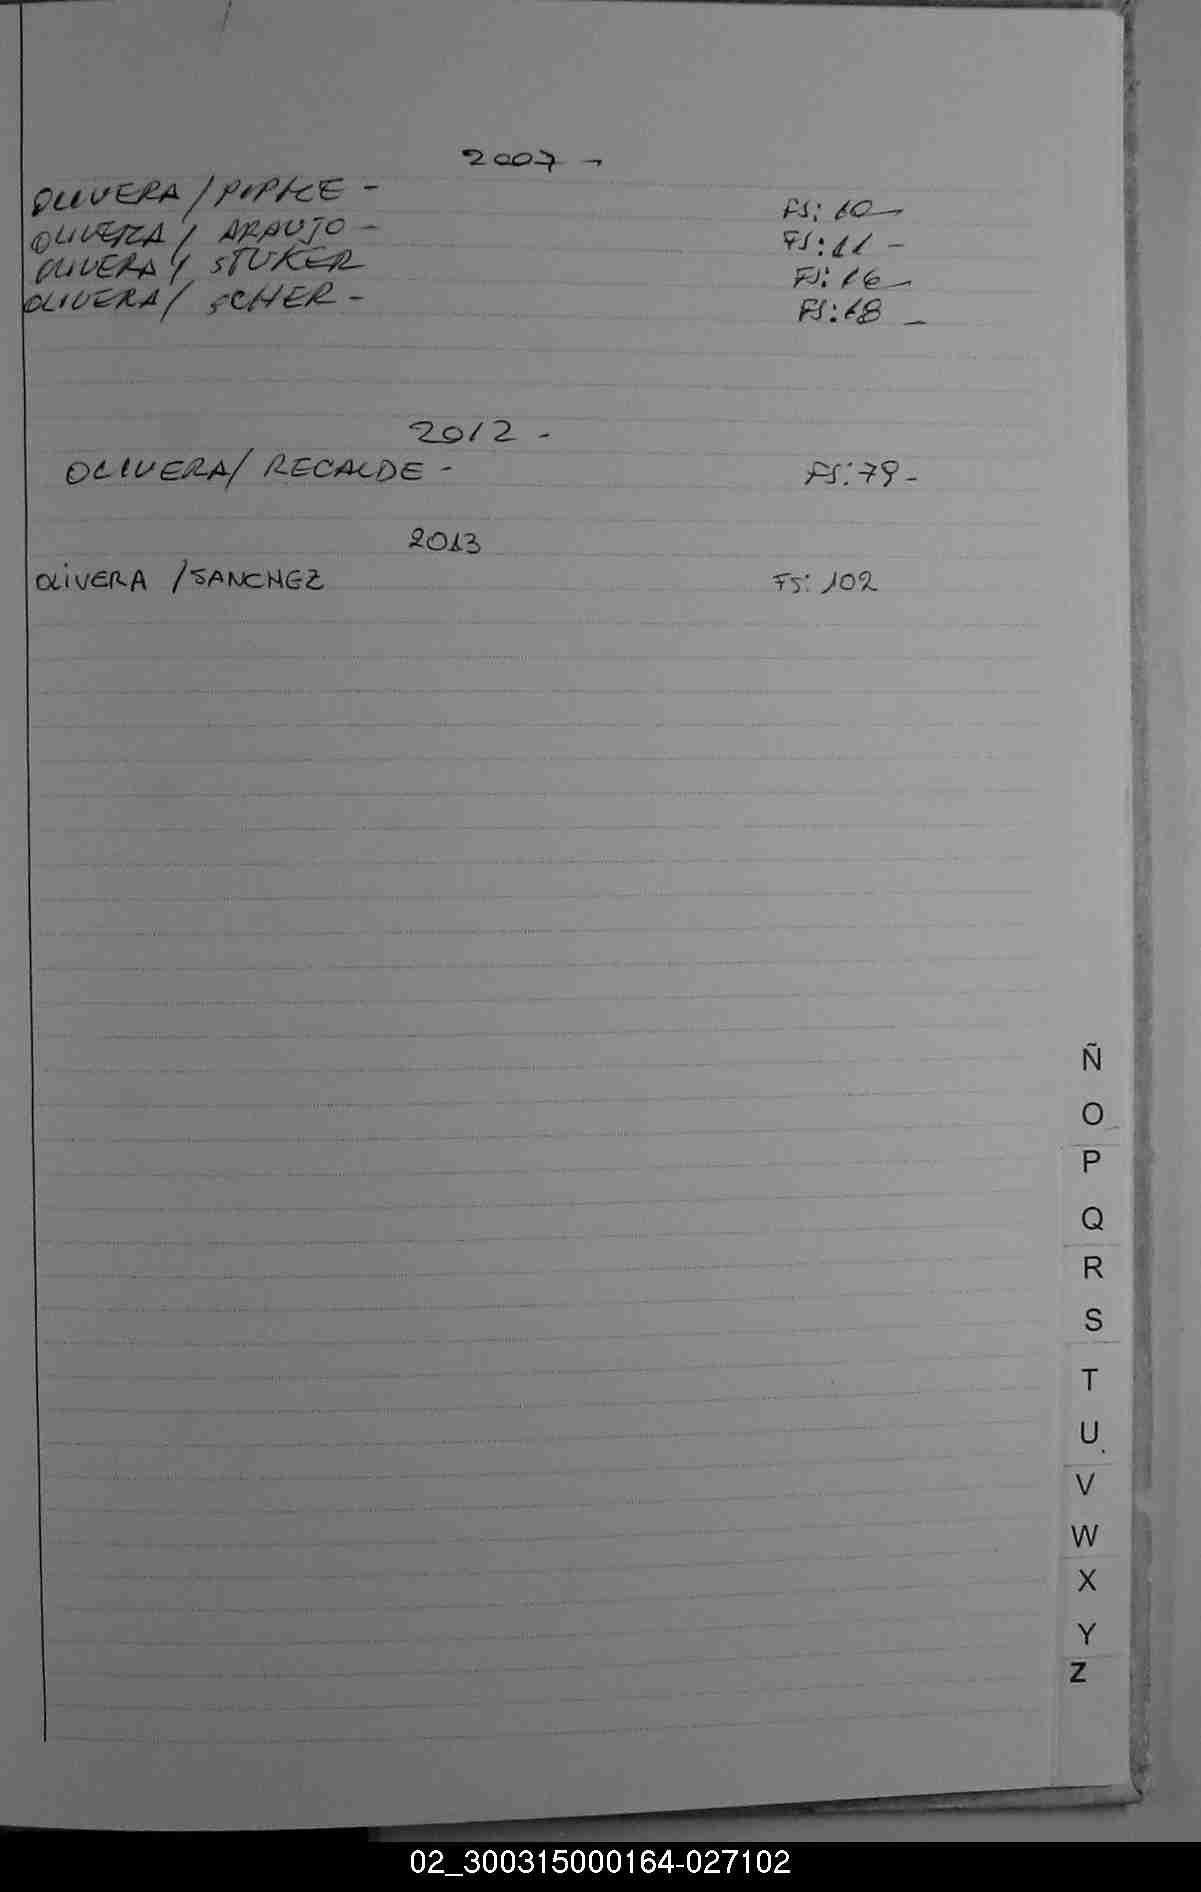 2007 -
OLIVERA / POPICE - FS: 10 -
OLIVERA / ARAUJO - FS: 11 -
OLIVERA / STUKER FS: 16 -
OLIVERA / SCHER - FS: 18 -
2012 -
OLIVERA / RECALDE - FS: 79 -
2013
OLIVERA / SANCHEZ FS: 102
Ñ
O
P
Q
R
S
T
U
V
W
X
Y
Z
02_300315000164-027102